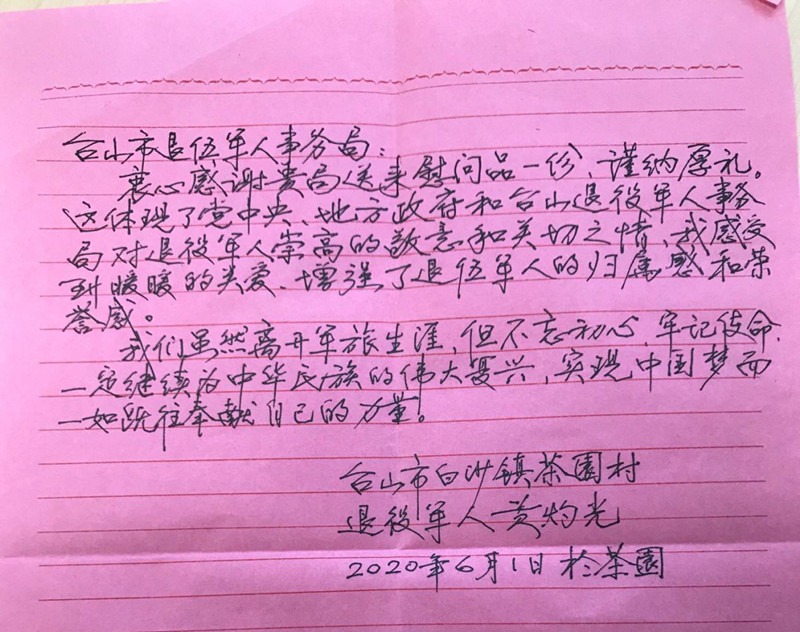 台山市退伍军人事务局：
衷心感谢贵局送来慰问品一份，谨纳厚礼。
这体现了党中央、地方政府和台山退役军人事务
局对退役军人崇高的敬意和关切之情，我感受
到暖暖的关爱、增强了退伍军人的归属感和荣
誉感。
我们虽然离开军旅生涯，但不忘初心，牢记使命，
一定继续为中华民族的伟大复兴，实现中国梦而
一如既往奉献自己的力量。
台山市白沙镇茶園村
退役军人黄灼光
2020年6月1日於茶園